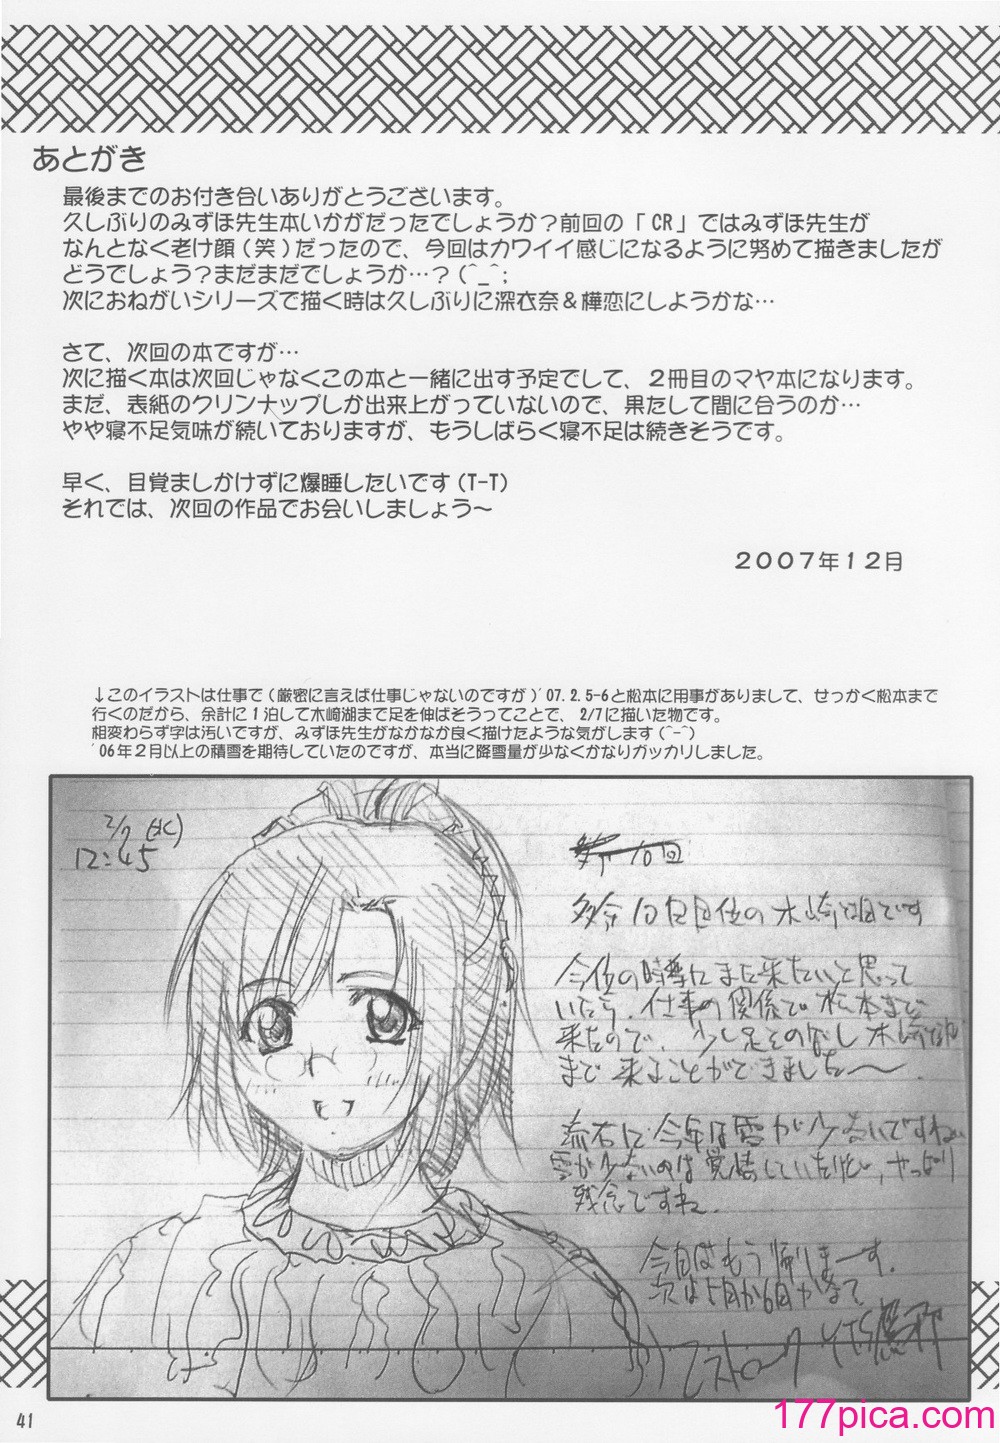 あとがき
最後までのお付き合いありがとうございます。
久しぶりのみずほ先生本いかがだったでしょうか?前回の「CR」ではみずほ先生が
なんとなく老け顔(笑)だったので、今回はカワイイ感じになるように努めて描きましたが
どうでしょう?まだまだでしょうか…?(^_^;
次におねがいシリーズで描く時は久しぶりに深衣奈&樺恋にしようかな…
さて、次回の本ですが…
次に描く本は次回じゃなくこの本と一緒に出す予定でして、2冊目のマヤ本になります。
まだ、表紙のクリンナップしか出来上がっていないので、果たして間に合うのか…
やや寝不足気味が続いておりますが、もうしばらく寝不足は続きそうです。
早く、目覚ましかけずに爆睡したいです(T-T)
それでは、次回の作品でお会いしましょう~
2007年12月
↓このイラストは仕事で(厳密に言えば仕事じゃないのですが)'07.2.5-6と松本に用事がありまして、せっかく松本まで
行くのだから、余計に1泊して木崎湖まで足を伸ばそうってことで、2/7に描いた物です。
相変わらず字は汚いですが、みずほ先生がなかなか良く描けたような気がします(^-^)
'06年2月以上の積雪を期待していたのですが、本当に降雪量が少なくかなりガッカリしました。
2/7(水)
12:45
10回
多分10回目位の木崎湖です
今位の時季にまた来たいと思って
いたら、仕事の関係で松本まで
来たので、少し足をのばし木崎湖
まで来ることができました~
流石に今年は雪が少ないですね
雪が少ないのは覚悟していたけど、やっぱり
残念ですね。
今日はもう帰りまーす。
次は5月か6月かなって
41
177pica.com